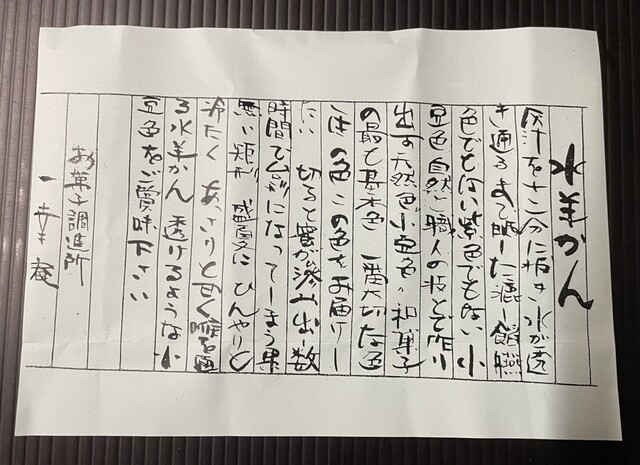 水羊かん
灰汁を十二分に抜き水が透
き通るまで晒した漉し餡
色でもない紫色でもない小
豆色自然と職人の技とで作り
出す天然色小豆色。和菓子
の最も基本色 一番大切な色
はこの色 この色をお届けし
たい 切ると蜜が滲み出し数
時間で台形になってしまう果
無い矩形 盛夏に ひんやりと
冷たく あっさりと甘く喉を
る水羊かん 透けるような小
豆色をご賞味下さい
お菓子調進所
一幸庵